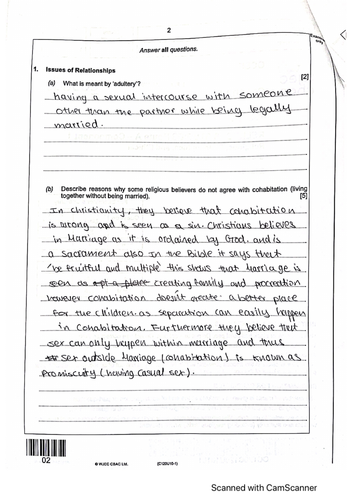 2
Answer all questions.
Examiner
only
1. Issues of Relationships
(a) What is meant by 'adultery'? [2]
having a sexual intercourse with someone
other than the partner while being legally
married.
(b) Describe reasons why some religious believers do not agree with cohabitation (living
together without being married). [5]
In christianity, they believe that cohabitation
is wrong and is seen as a sin. Christians believes
in Marriage as it is ordained by God. and is
a Sacrament also In the Bible it says that
'be fruitful and multiple' this shows that Marriage is
seen as creating family and procreation
however cohabitation doesn't create a better place
for the children. as separation can easily happen
in Cohabitation. Furthermore they believe that
sex can only happen within marriage and thus
sex outside Marriage (cohabitation) is known as
Promiscuity (having casual sex).
02
© WJEC CBAC Ltd.
(C120U10-1)
Scanned with CamScanner